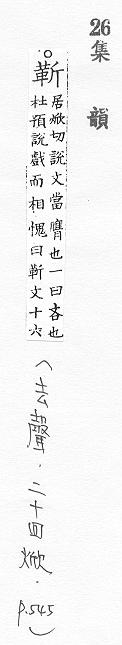 26集韻
○靳居焮切說文當膺也一曰吝也
杜預說戲而相愧曰靳文十六
(去聲.二十四焮.p.545)